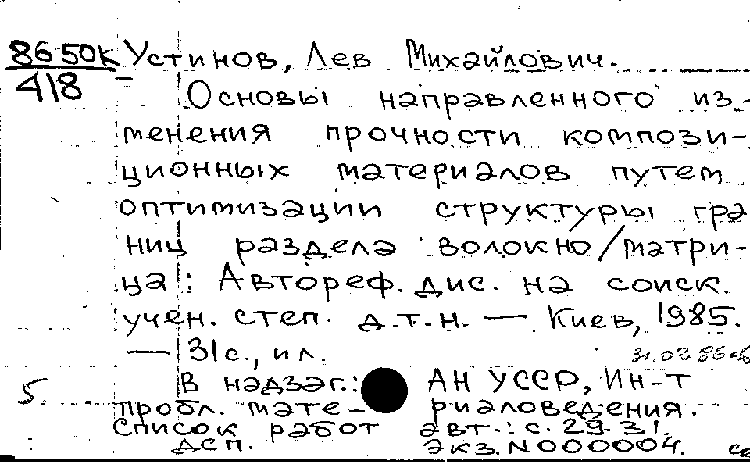 86 50К Устинов, Лев Михайлович.
418
Основы направленного из-
менения прочности компози-
ционных материалов путем
оптимизации структуры гра
ниц раздела волокно/матри-
ца : Автореф. дис. на соиск.
учен. степ. д.т.н. — Киев, 1985.
— 31с., ил.
5. В надзаг.: АН УССР, Ин-т
пробл. мате- риаловедения.
Список работ авт.: с. 29-31.
ДСП. Экз. N000004.